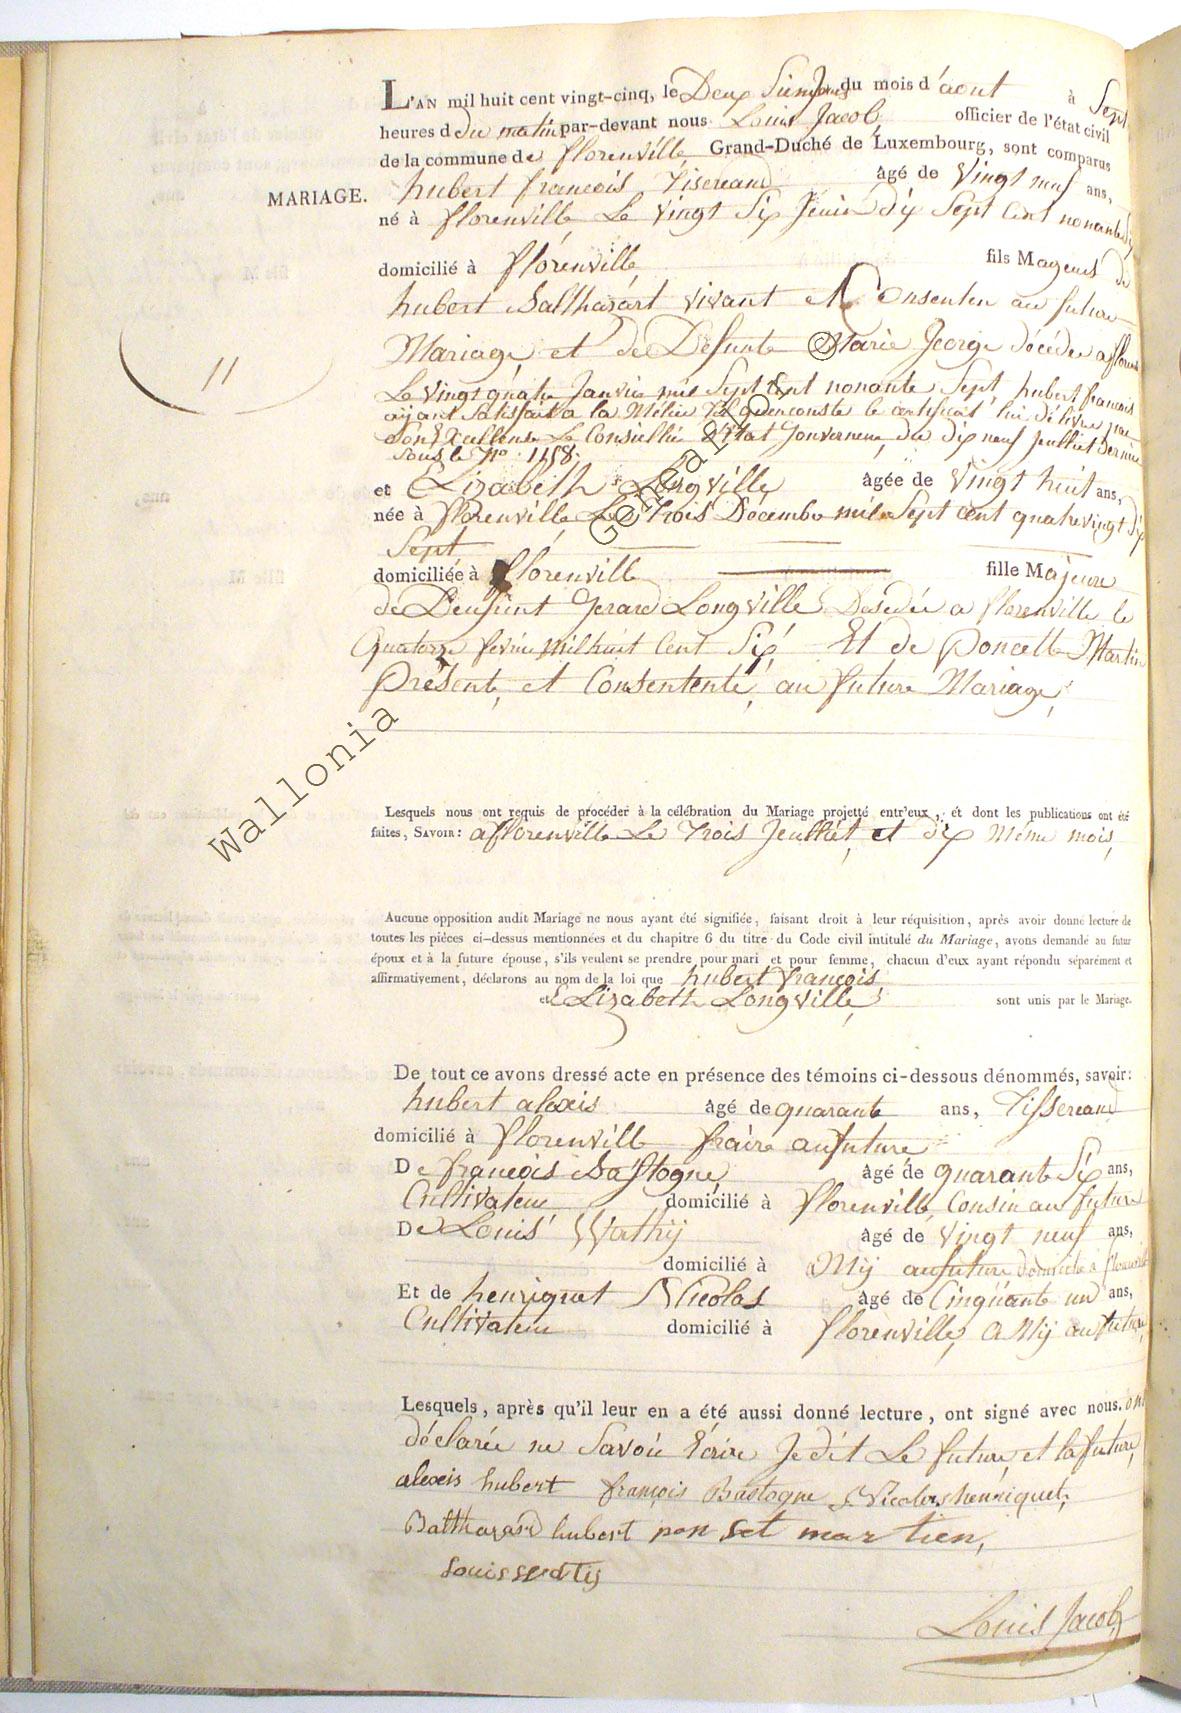 L'AN mil huit cent vingt-cinq, le Deux Siem Jours du mois d'aout à Sept
heures d du matin par-devant nous Louis Jacob officier de l'état civil
de la commune de florenville Grand-Duché de Luxembourg, sont comparus
MARIAGE.
hubert francois Tisereand âgé de Vingt neuf ans,
né à florenville Le Vingt Six Jeuin dix Sept Cent nonante
domicilié à florenville fils Mageur de
hubert Balthazart vivant et Consenten au future
Mariage, et de Defunte Marie Jeorge décédée a
11
Le vingt quatre Janvie mil Sept Cent nonante Sept, hubert francois
ayant Satisfait a la Mélice tel quenconste le certificat lui délivre par
Son Excellense Le Consiellié d'Etat Gouverneur du dix neuf Jeulliet dernier
Sous le No. 1158.
et Elizabeth Longville âgée de Vingt huit ans,
née à florenville Le trois Décembre mil Sept Cent quatrevingt dix
Sept
domiciliée à florenville fille Majeure
de Deufunt Gerard Longville Dasedée a florenville le
Quatorze fevrie milhuit Cent Six Et de Poncelle Martin
Présente, et Consentente, au future Mariage,
Gonzalo
Wallonia
Lesquels nous ont requis de procéder à la célébration du Mariage projetté entr'eux, et dont les publications ont été
faites, SAVOIR: a florenville Le Trois Jeulliet, et dix Méme mois,
Aucune opposition audit Mariage ne nous ayant été signifiée, faisant droit à leur réquisition, après avoir donné lecture de
toutes les pièces ci-dessus mentionnées et du chapitre 6 du titre du Code civil intitulé du Mariage, avons demandé au futur
époux et à la future épouse, s'ils veulent se prendre pour mari et pour femme, chacun d'eux ayant répondu séparément et
affirmativement, déclarons au nom de la loi que hubert françois
et Elizabeth Longville, sont unis par le Mariage.
De tout ce avons dressé acte en présence des témoins ci-dessous dénommés, savoir:
hubert alexis âgé de quarante ans, Tissereand
domicilié à florenville fraire au future
De francois Bastogne, âgé de quarante Six ans,
Cultivateur, domicilié à florenville, Cousin au future
De Louis Wathy âgé de Vingt neuf ans,
domicilié à Amy au future domicilié à florenville
Et de henriquet Nicolas âgé de Cinquante un ans,
Cultivateur domicilié à florenville, Amy au future,
Lesquels, après qu'il leur en a été aussi donné lecture, ont signé avec nous. ont
déclarée ne Savoir Ecrire Jedit Le future, et la future,
alexis hubert françois Bastogne Nicolas henriquet,
Balthazard hubert pon set mar tien,
Louis
Louis Jacob